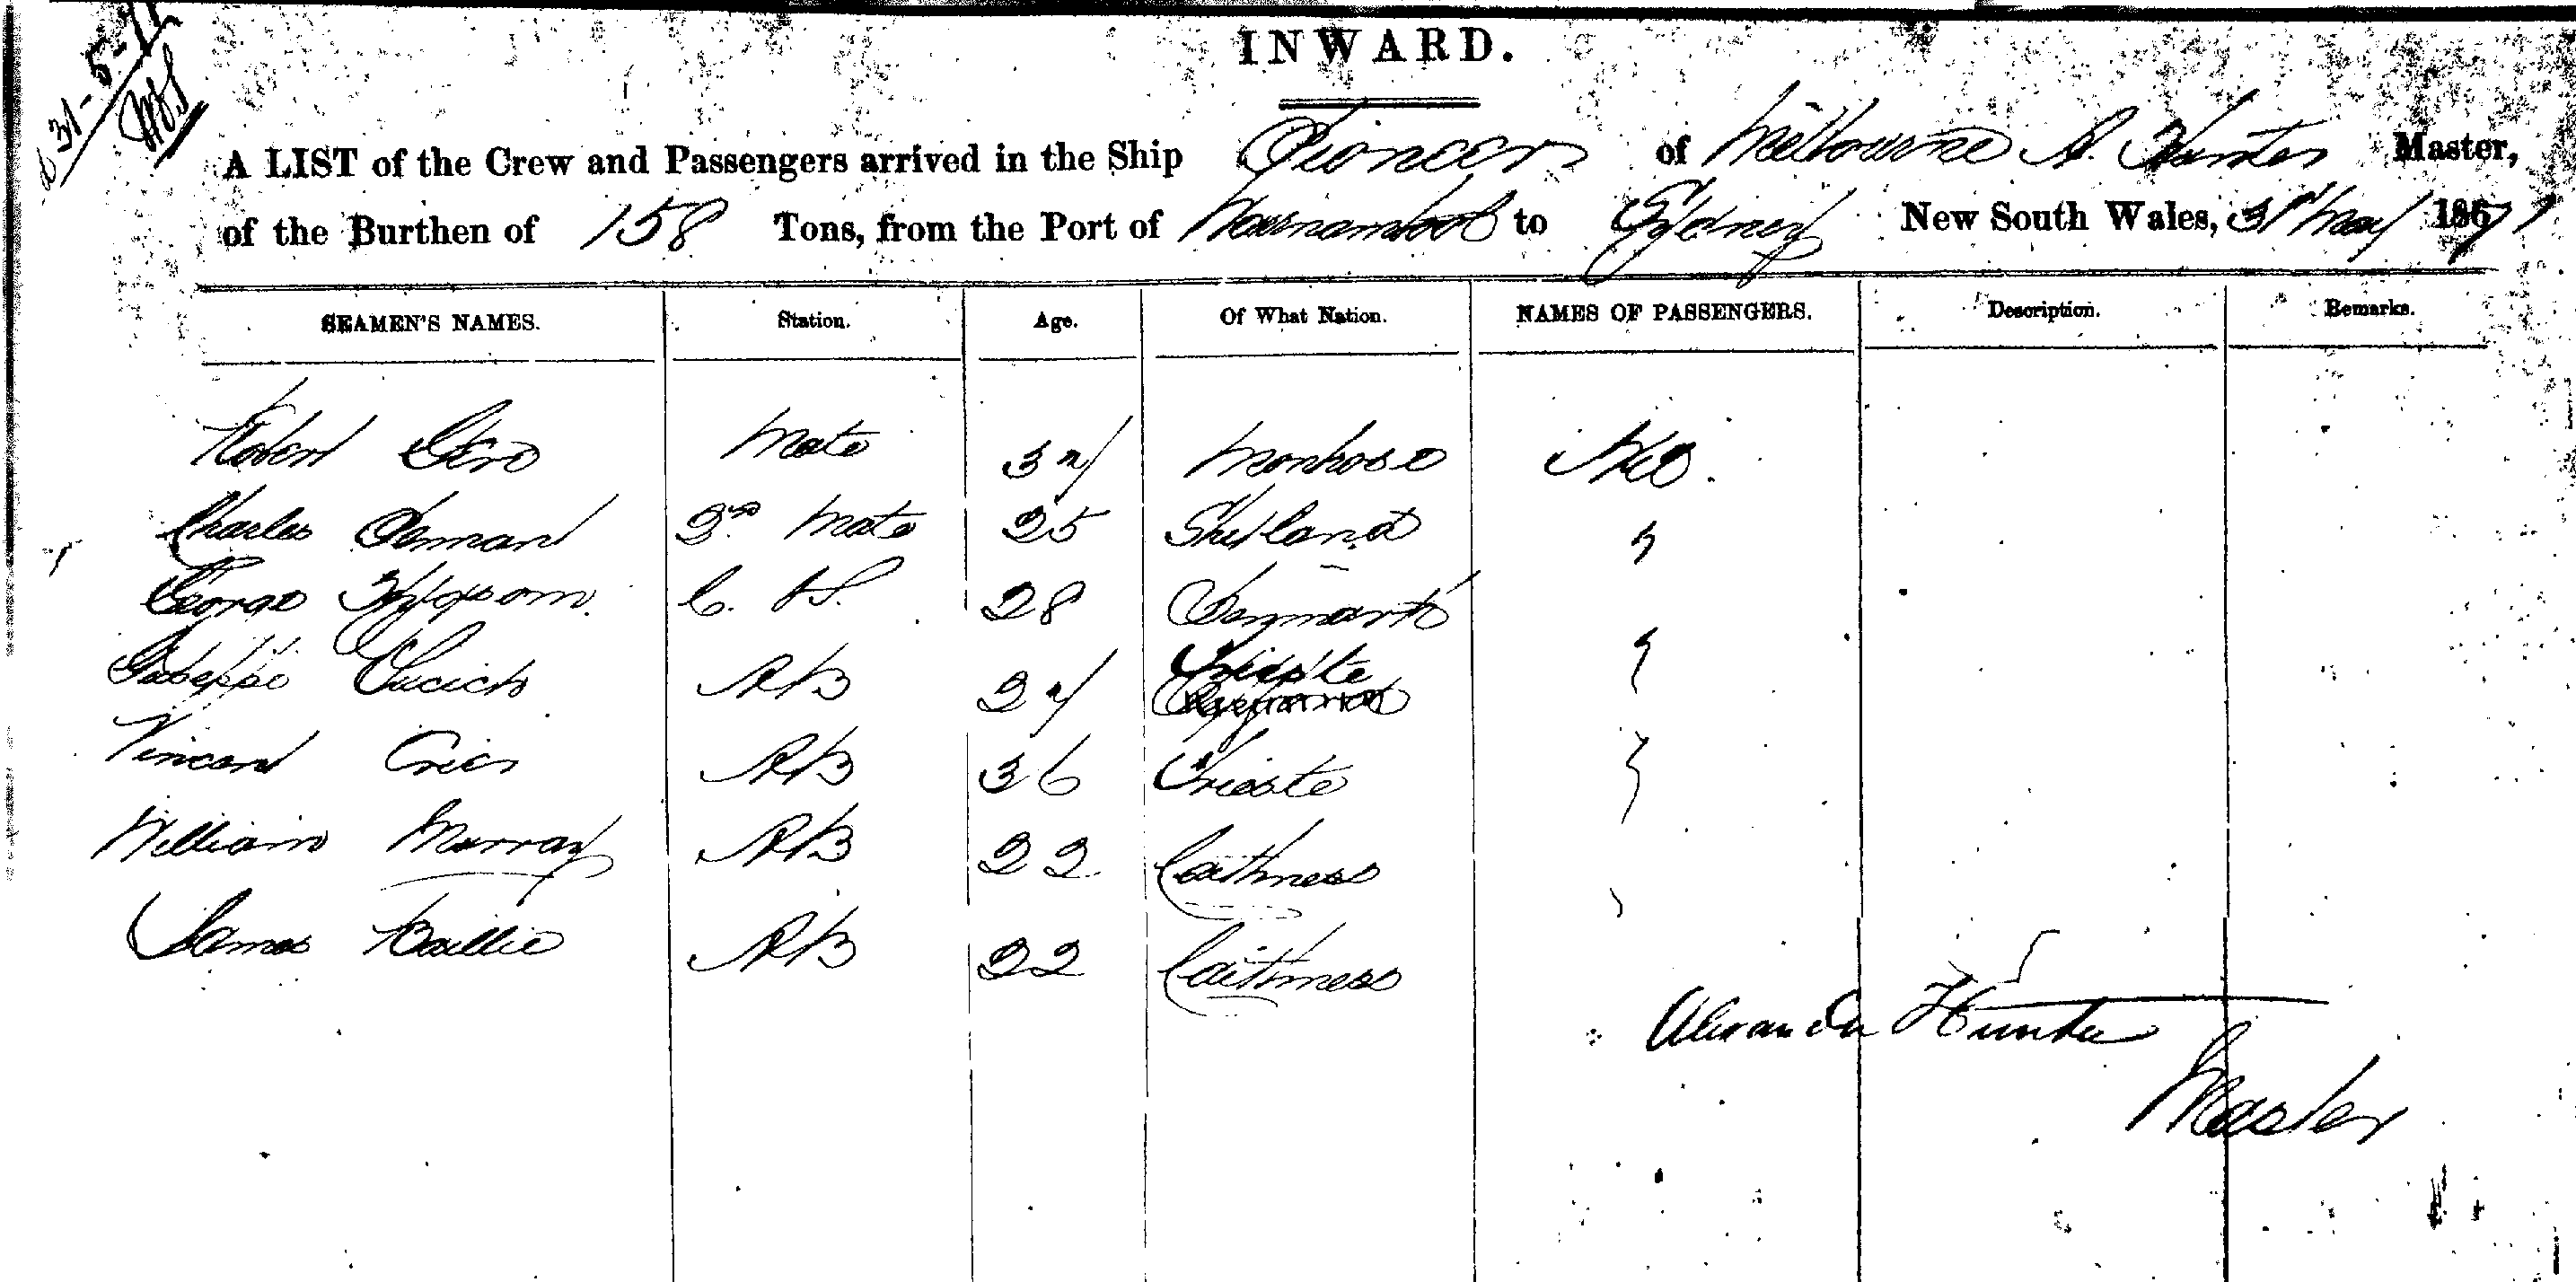 31-5-71
INWARD.
A LIST of the Crew and Passengers arrived in the Ship Pioneer of Melbourne A. Hunter Master,
of the Burthen of 158 Tons, from the Port of Warnambool to Sydney New South Wales, 31st May 1871
SEAMEN'S NAMES. Station. Age. Of What Nation. NAMES OF PASSENGERS. Description. Remarks.
Robert Mate Montrose Nil.
Charles 2nd Mate 25 Shetland "
George C. &S. 28 Denmark
Lucich AB Trieste "
Vincent AB 36 Trieste
William Murray AB 22 Caithness
James Baillie AB 22 Caithness
Alexander Hunter
Master